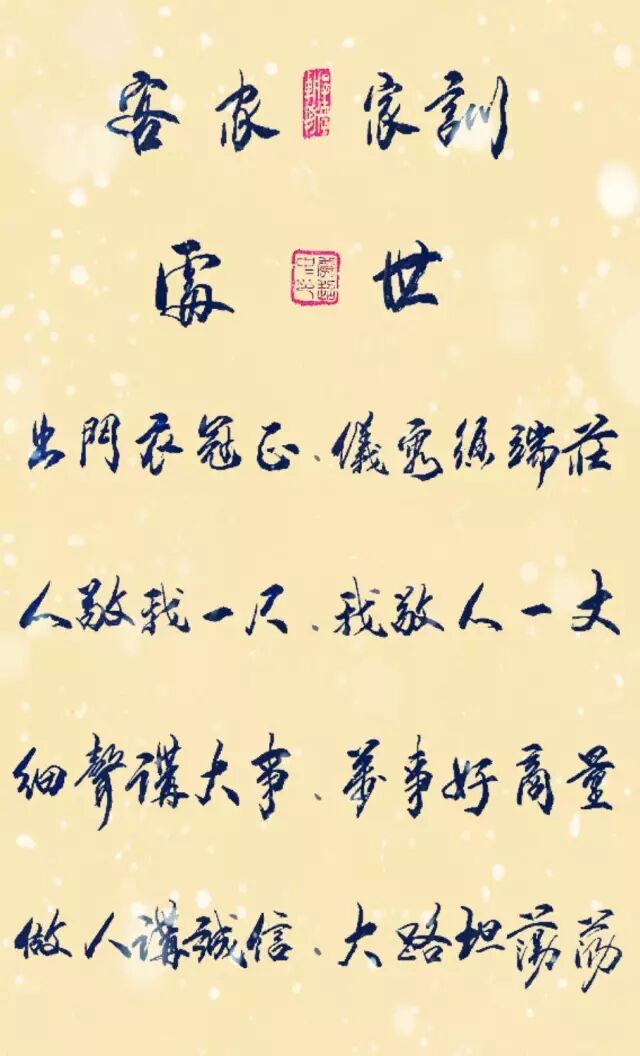 客家家訓
處世
出門衣冠正、儀容須端莊
人敬我一尺、我敬人一丈
細聲講大事、萬事好商量
做人講誠信、大路坦蕩蕩